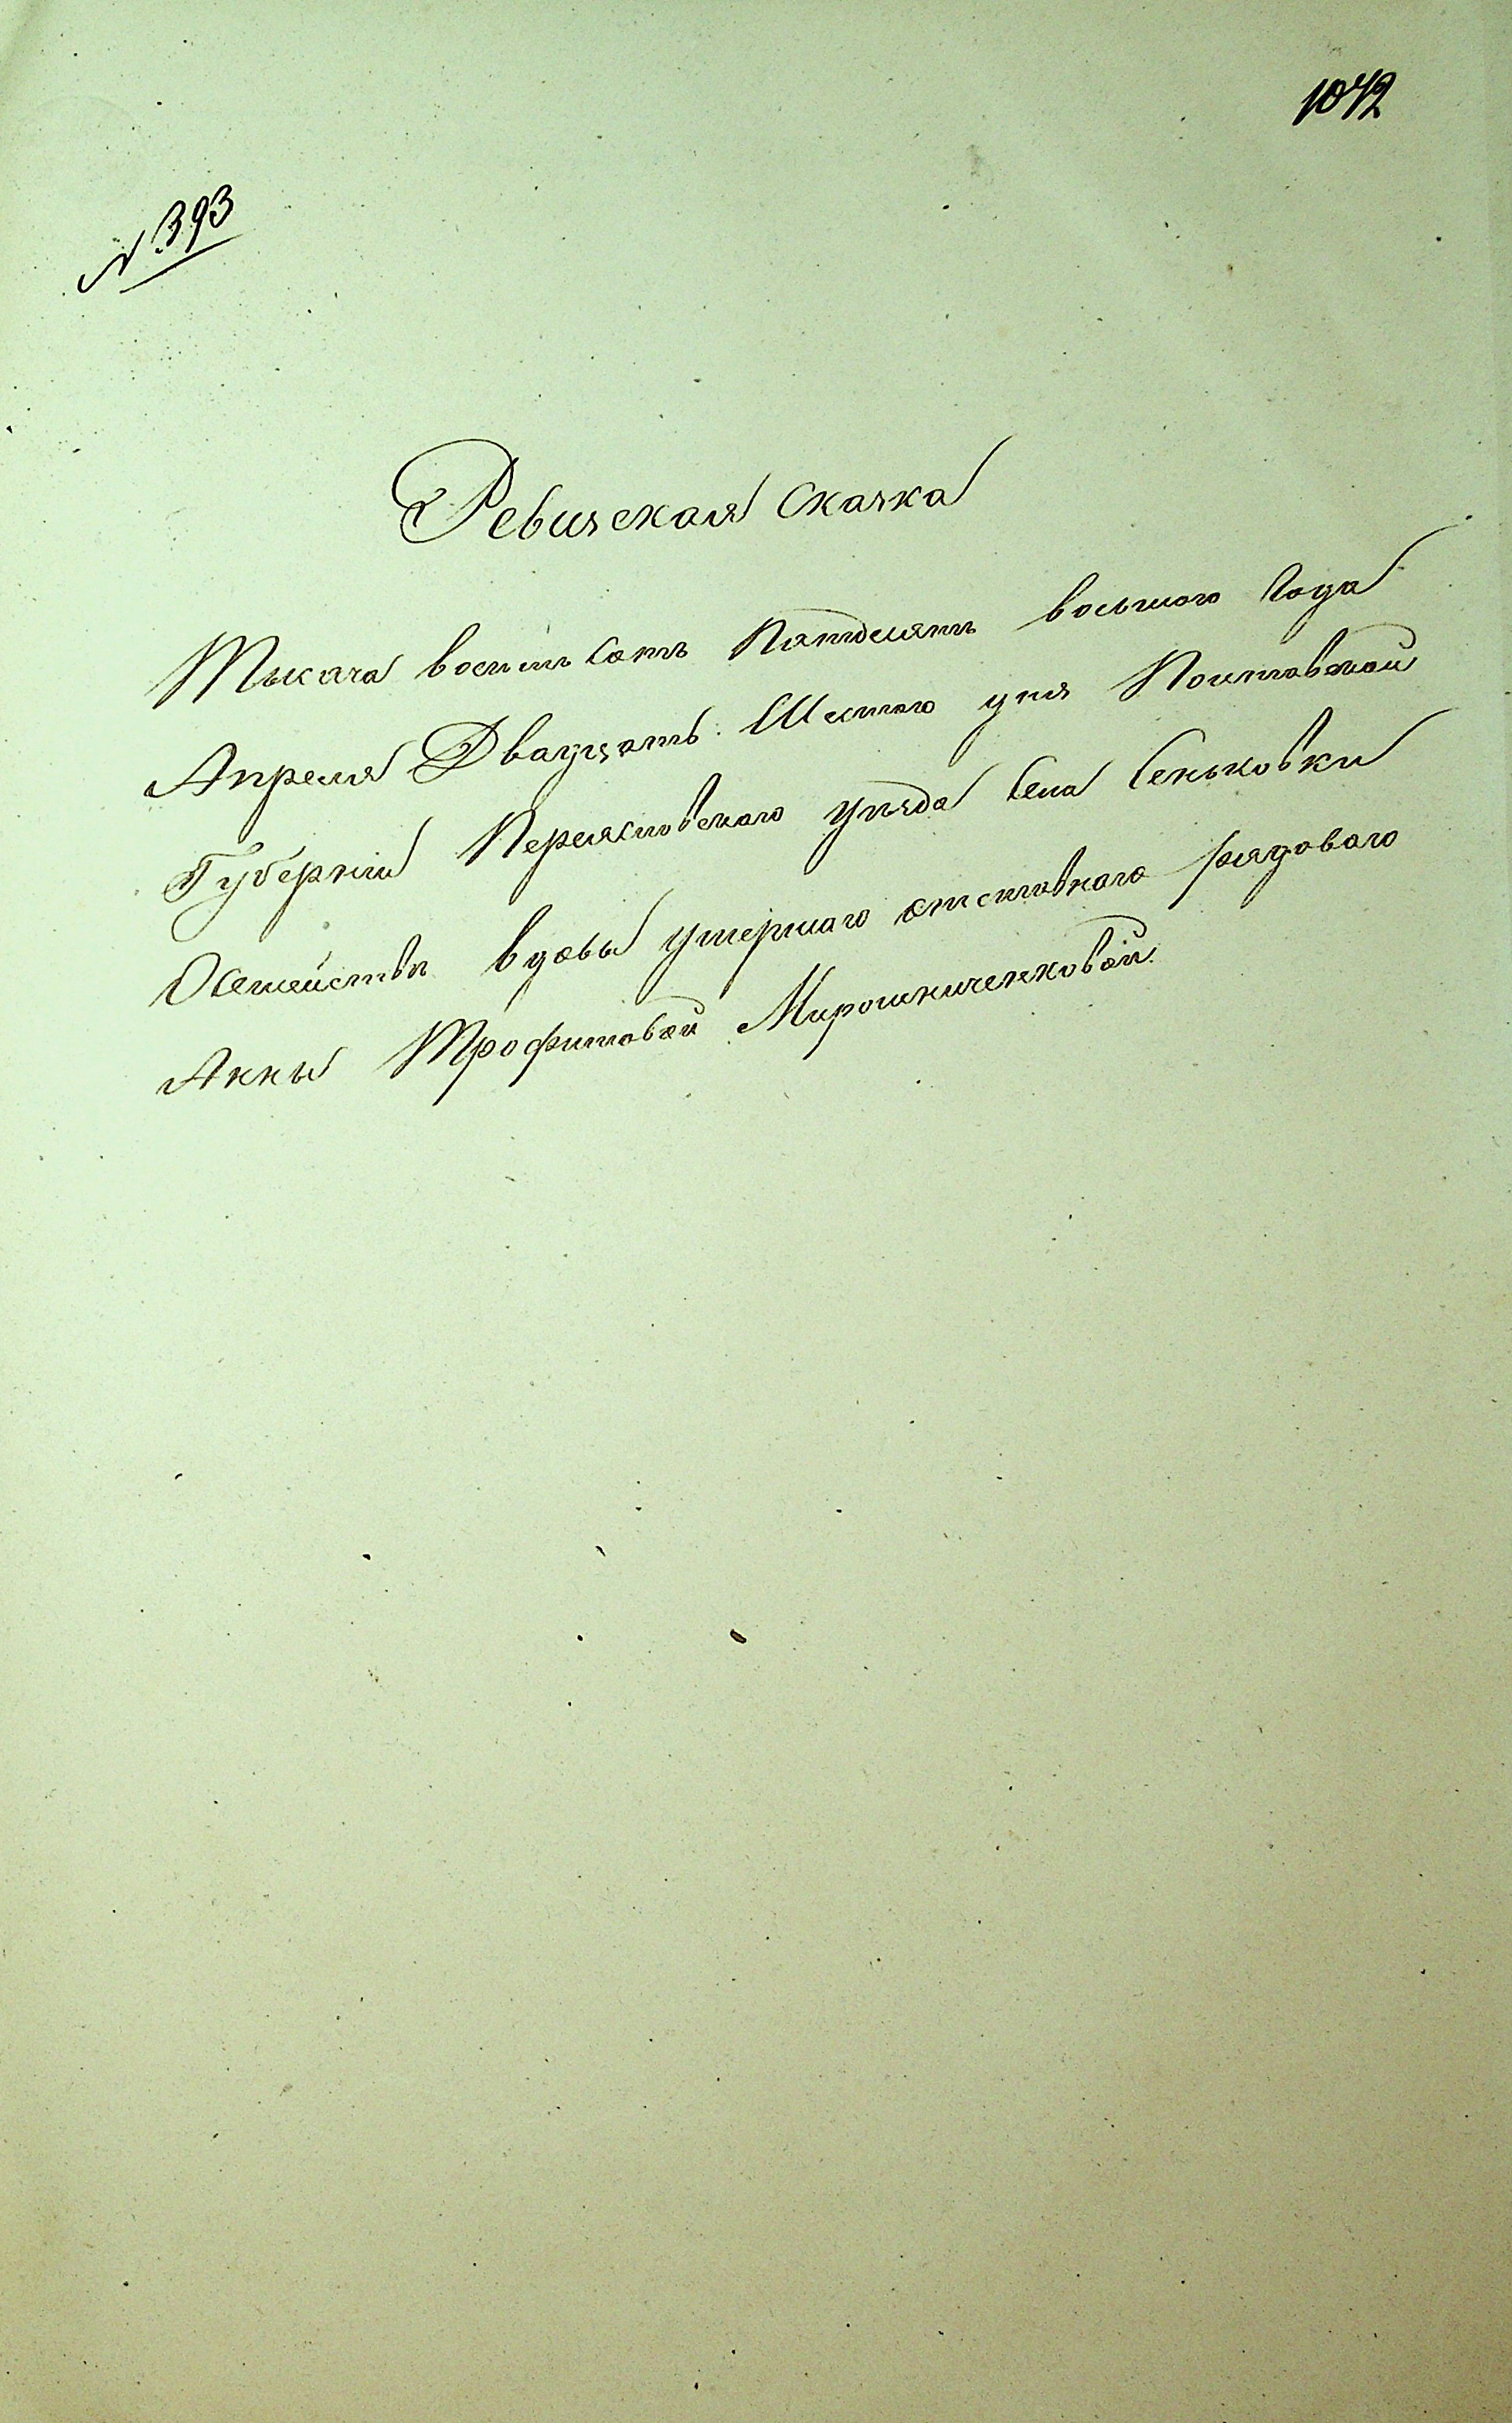 1042
N 393
Ревизская сказка
Тысяча восемь сотъ Пятдесятъ восьмого Года
Апреля Двадцать Шестого дня Полтавской
Губерніи Переясловского уѣзда села Сеньковки
О семействѣ вдовы умершаго отставнаго рядоваго
Анны Трофимовой Мирошниченковой.